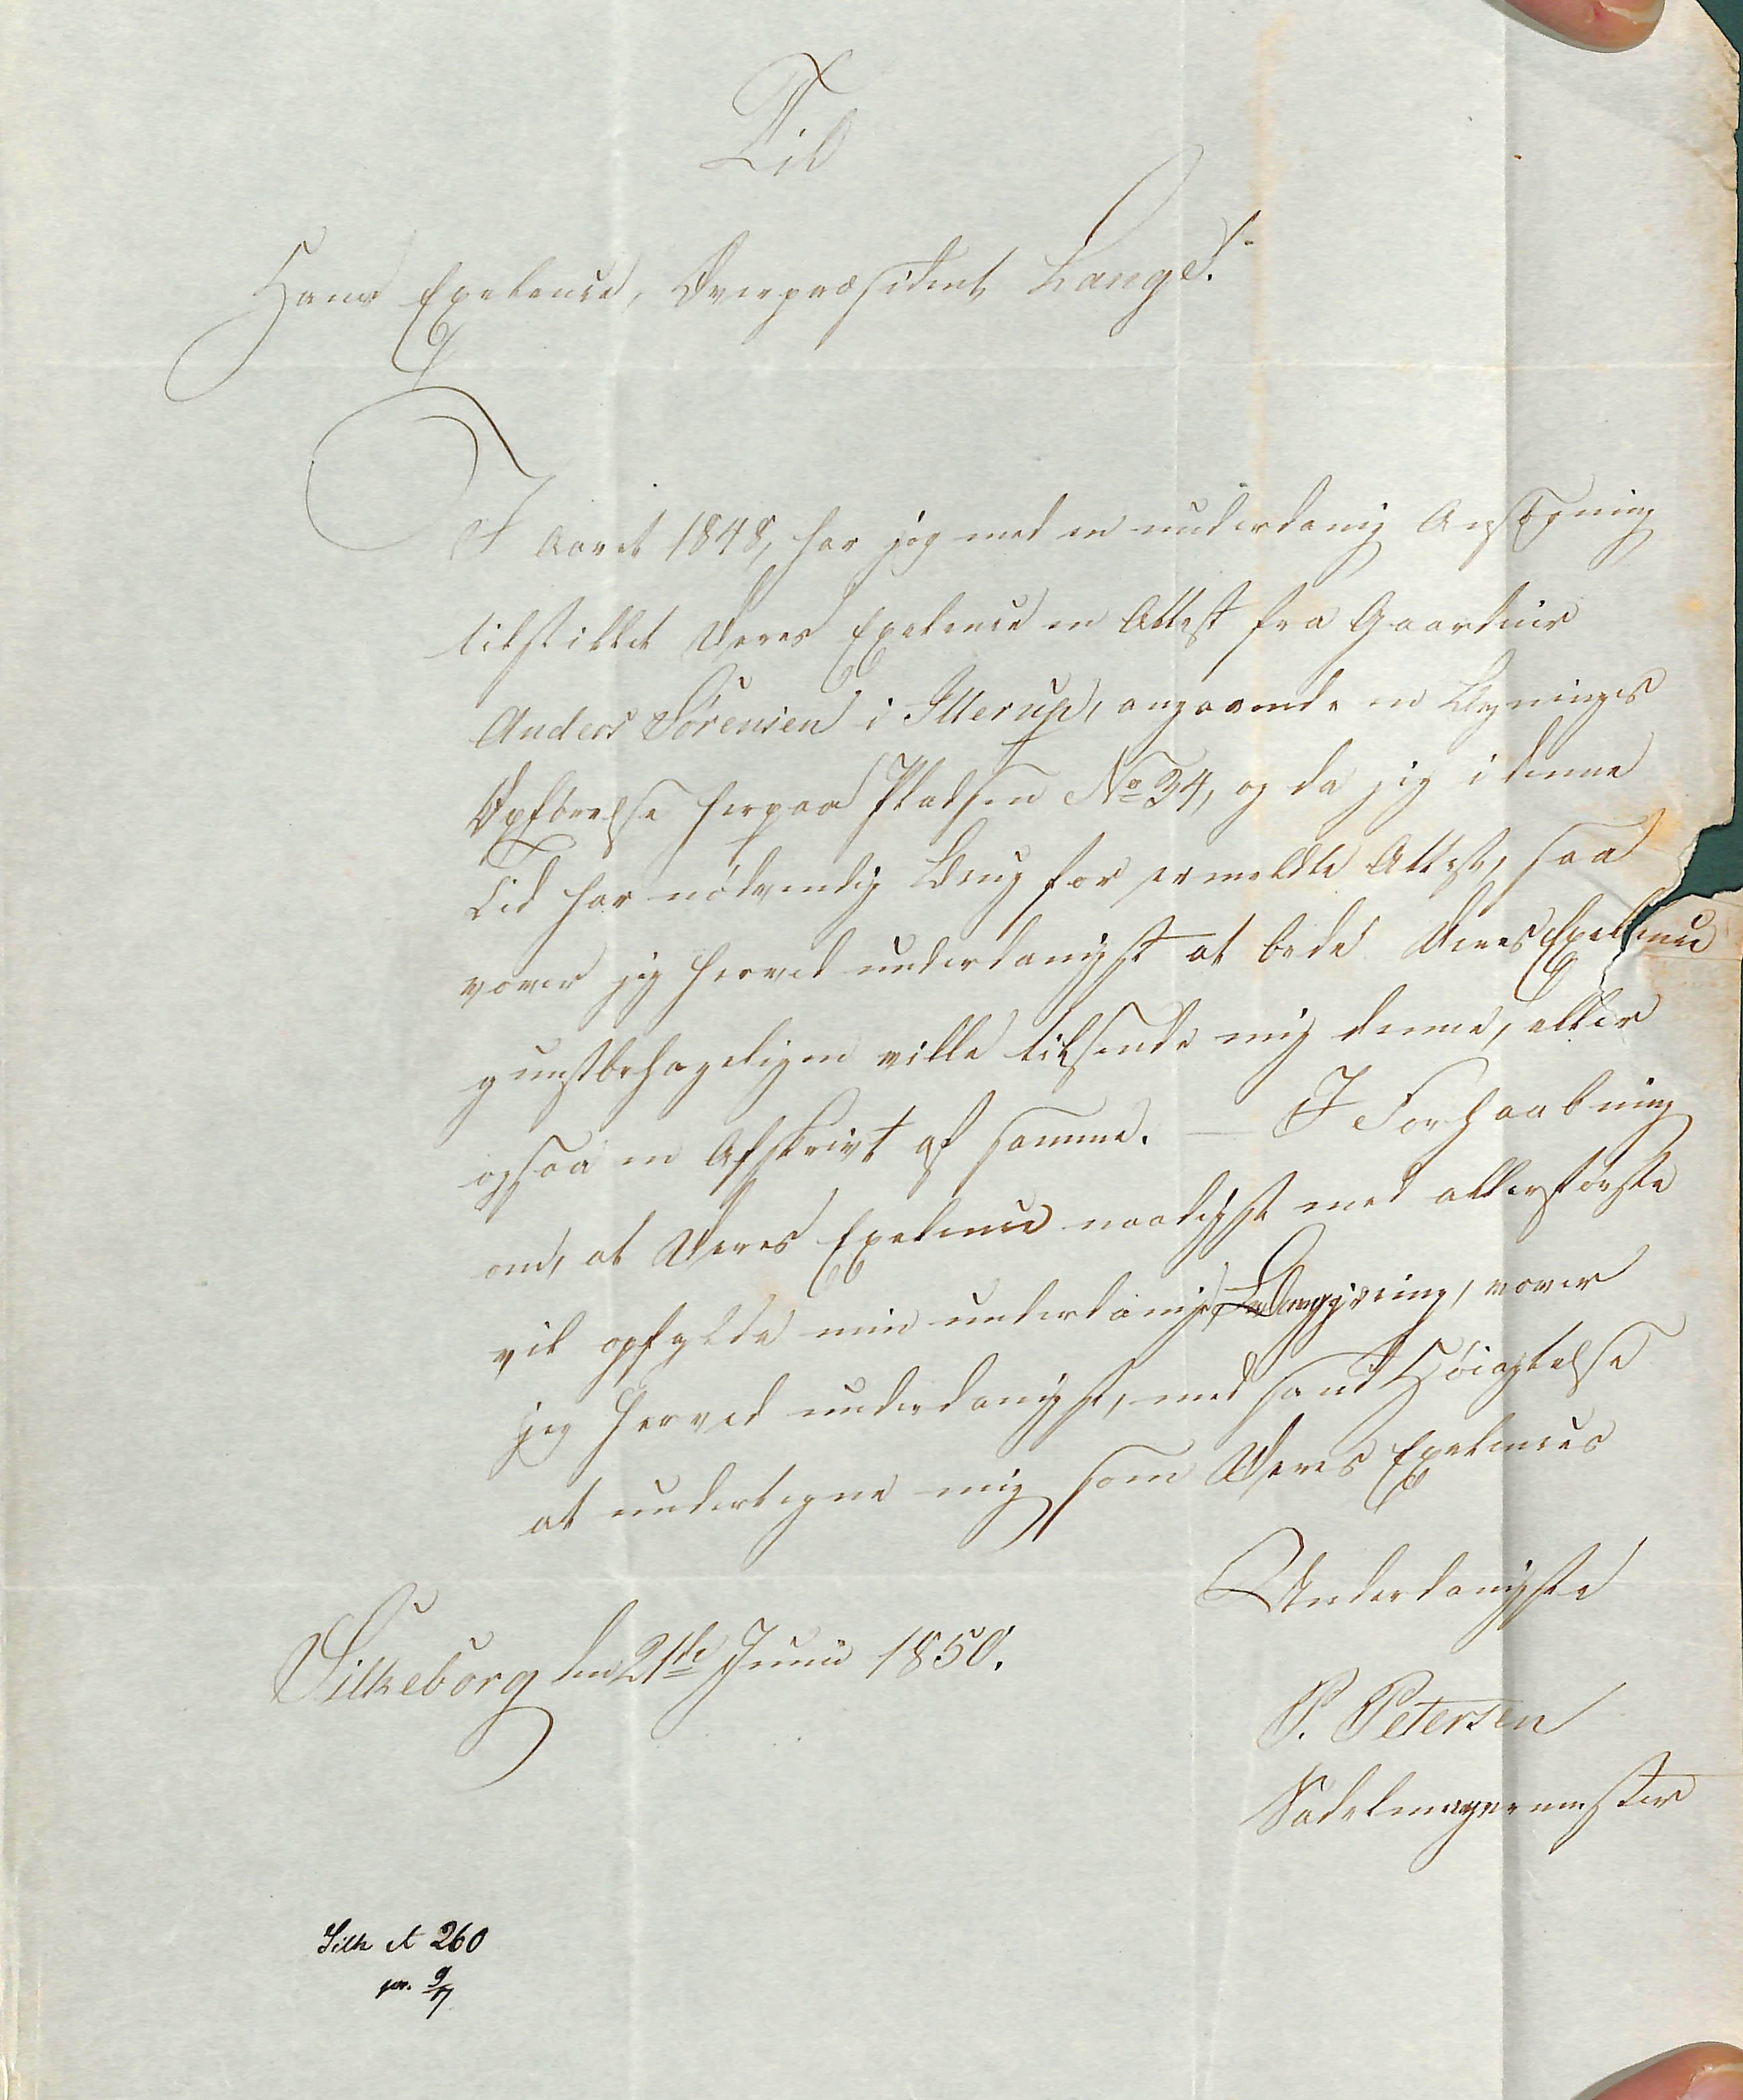 Til
Hans Exelence, Overpræsident Lange S.
I Aaret 1848, har jeg med en underdanig Ansøgning
tilstillet Deres Exelence en Attest fra Gaardeier
Anders Sörensen i Illerup, angaaende en Bygnings
Opförelse herpaa Pladsen No 34, og da jeg i denne
Tid har nödvendig Brug for ermeldte Attest, saa
vover jeg herved underdanigst at bede Deres Exelence
gunstbehageligen ville tilsende mig denne, eller
ogsaa en Afskrivt af samme. — I Forhaabning
om, at Deres Exelence naadigst med allerförste
vil opfylde min underdanige Begjæring, vover
jeg herved underdanigst, med sand Höiagtelse
at undertegne mig som Deres Exelences
Underdanigste
Silkeborg den 21de Junii 1850.
P. Petersen
Sadelmagermester
Silk A 260
pr. 9/7